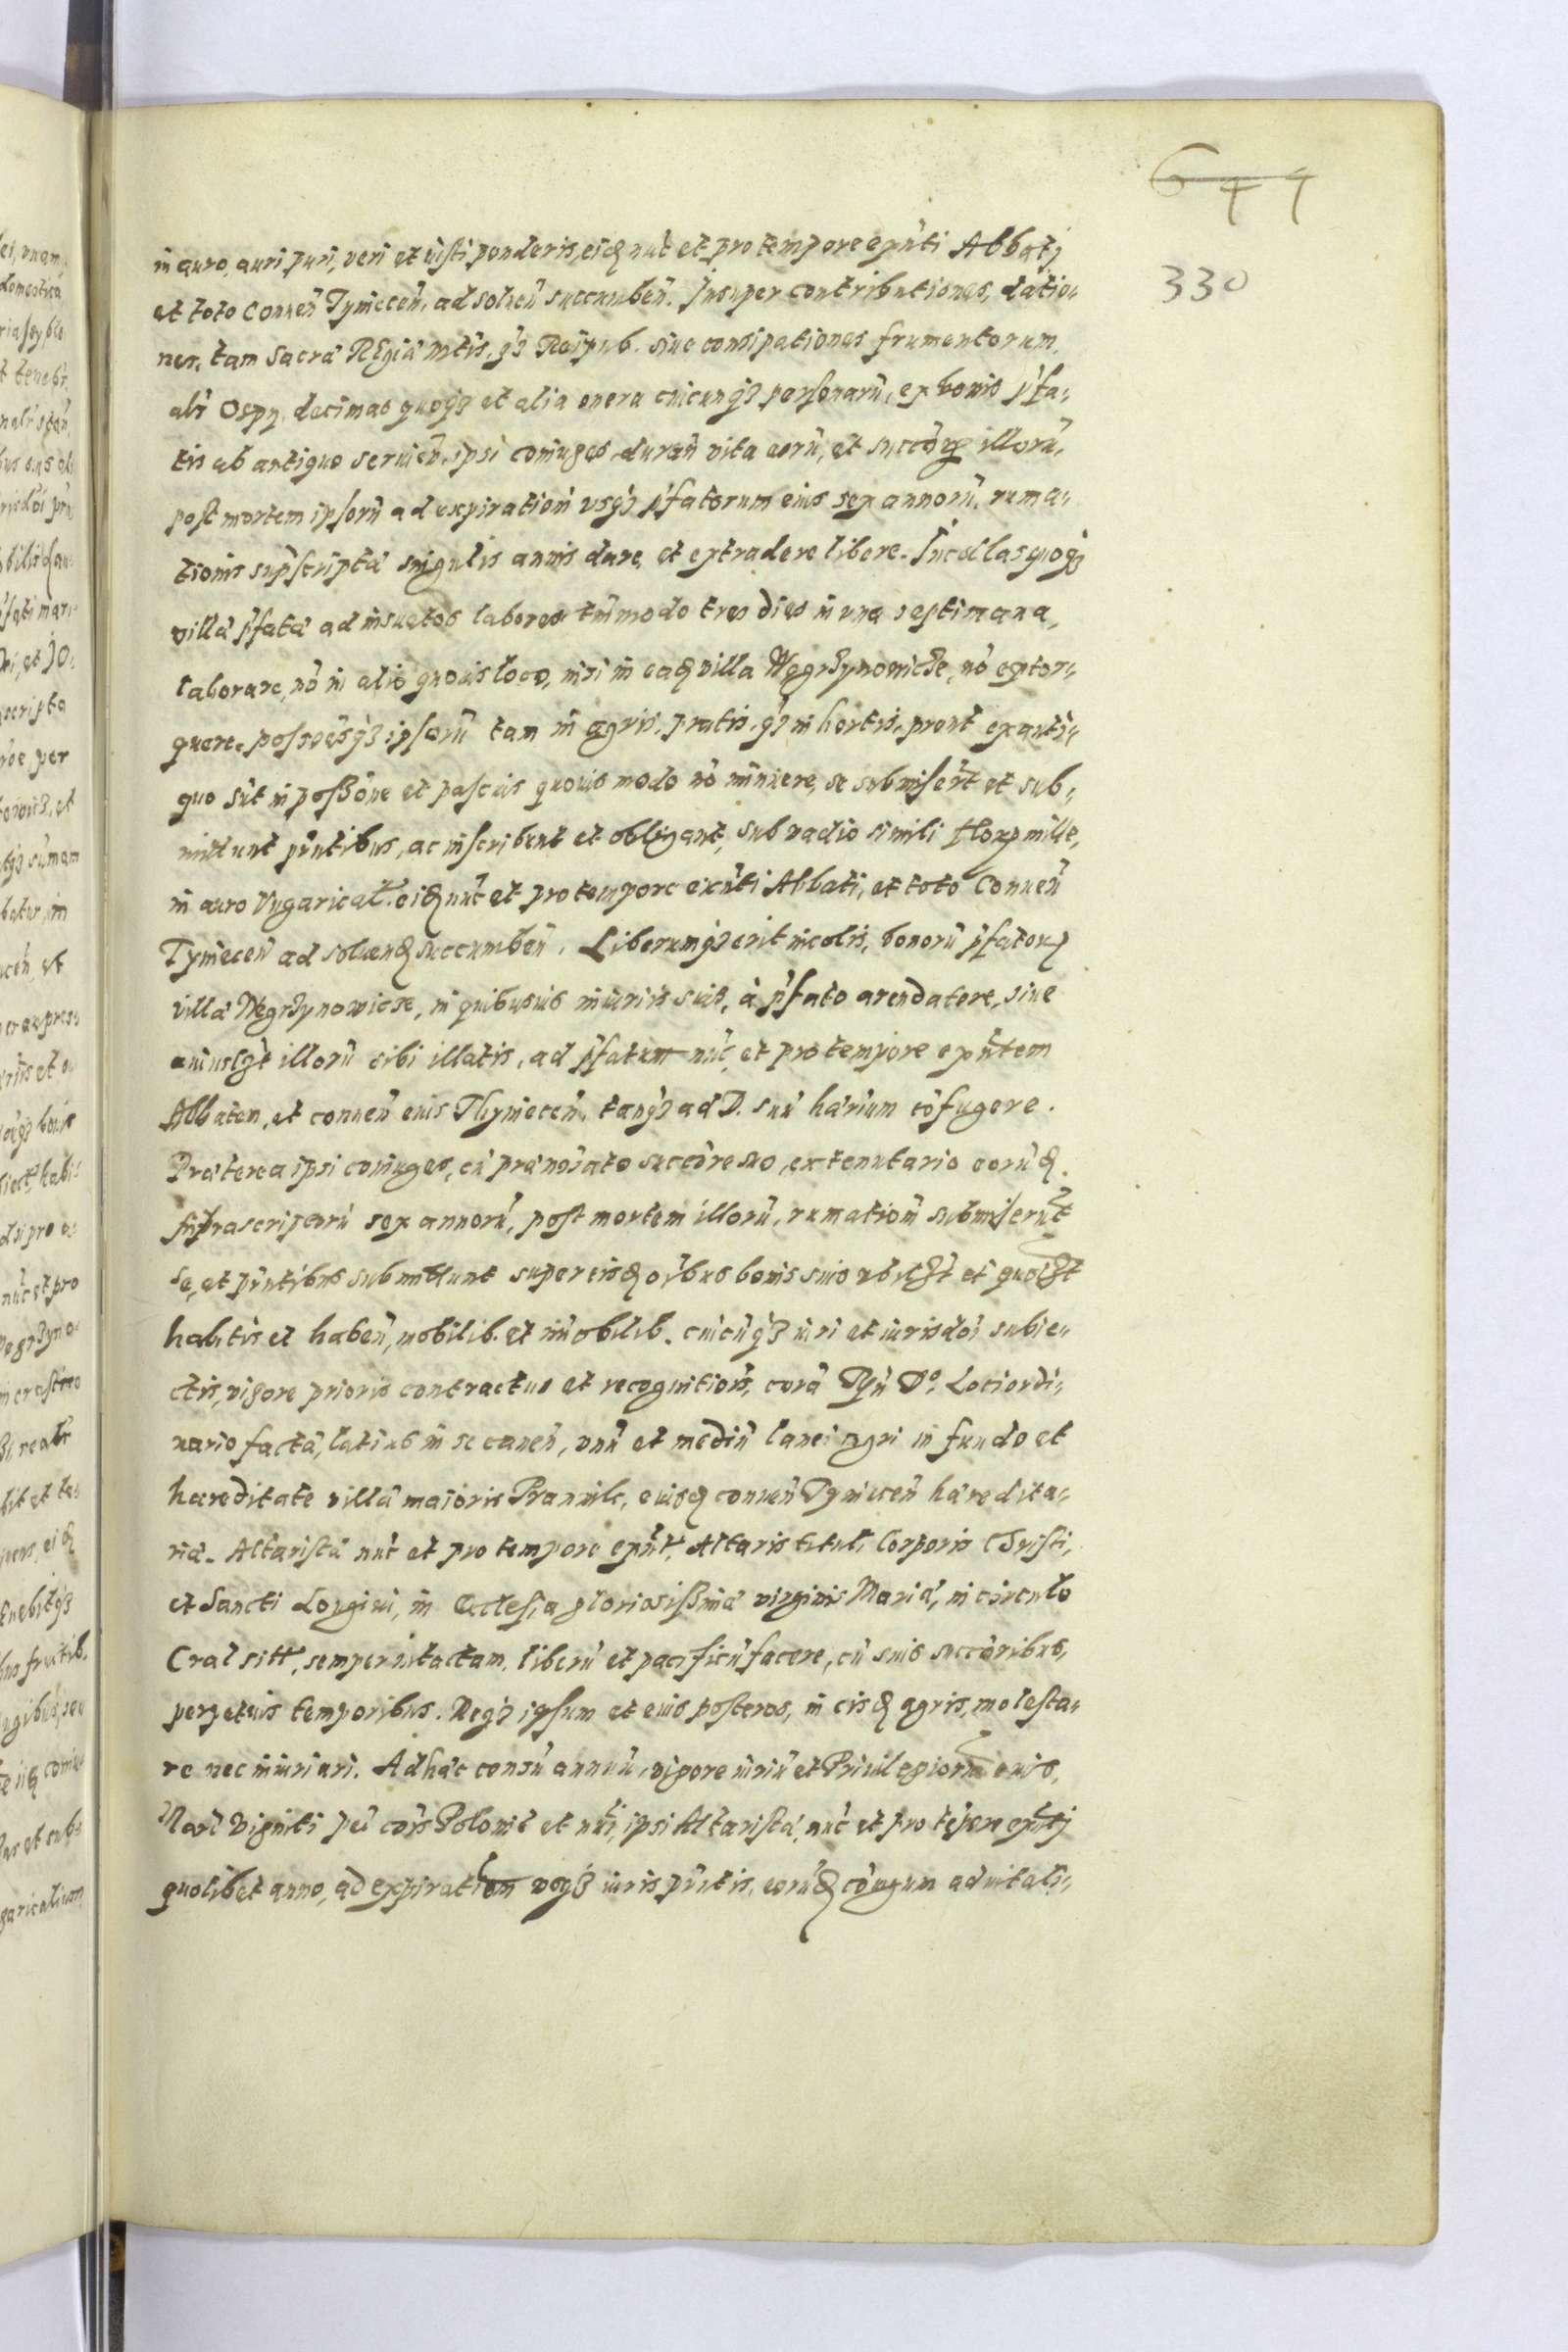 644
330
in auro, auri puri, veri et iusti ponderis, eidē nūc et pro tempore exñti Abbatj
et toto Conveñ Tyniecen̄, ad solveñ succumbeñ. Insuper contributiones, datio-
nes, tam Sacrae REgiae Mtis, q̃ȝ Reipub. siue consipationes frumentorum,
alr̃ Osep, decimas quoqȝ et alia onera cuicunqȝ personarū, ex bonis p̃fa-
tis ab antiquo servieñ, ipsi coniuges, durañ vita eorū, et succor̃ illorū,
post mortem ipsorū ad expirationē usqȝ p̃fatorum eius sex annorū, ruma-
tionis sup̃scriptae singulis annis dare, et extradere libere. Incolas quoqȝ
villae p̃fatae ad insuetos labores tm̃modo tres dies in una septimana,
laborare, nō in alio quovis loco, nisi in eadē villa Węgrzynowicze, nō extor-
quere, possoēsqȝ ipsorū tam in agris, pratis, q̃ȝ in hortis, prout ex anti-
quo sūt in poßōne et pascuis quovis modo nō minuere, se submiserūt et sub-
mittunt pñtibus, ac inscribunt et obligant, sub vadio simili florenorum mille,
in auro Vngarical. eidē nūc et pro tempore exñti Abbati, et toto Conveñ
Tynieceñ ad solvendū succumbeñ. Liberumqȝ erit incolis, bonorū p̃fatorū
villae Węgrzynowicze, in quibusvis iniuriis suis, à p̃fato arendatore, siue
cuiuslibet illorū sibi illatis, ad p̃fatum nūc, et pro tempore exñtem
Abbatem, et conveñ eius Thynieceñ, tanqȝ ad D. suū haerium cōfugere.
Praeterea ipsi coniuges, cū praenoīato succōre suo, ex tenutario eorūdē
supra scriptorū sex annorū, post mortem illorū, rumationū submiserūt
se, et pñtibus submittunt super eisdē oībus bonis suis ubilibet et quolibet
habitis et habeñ, mobilib. et im̃obilib. cuicūqȝ iuri et iurisdōi subie-
ctis, vigore prioris contractus et recognitiōis, corā Tyñ Dº. Loci ordi-
nario factae, latius in se caneñ, unū et mediū lanei agri in fundo et
haereditate villae maioris Prandnik, eiusdē conveñ Tynieceñ haeredita-
riae. Altaristae nūc et pro tempore exñti, Altaris tituli Corporis Christi,
et Sancti Longini, in Ecclesia gloriosißimae virginis Mariae, in circulo
Crac̃ sitae, semper intactam, liberū et pacificū facere, cū suis succōribus,
perpetuis temporibus. Neqȝ ipsum et eius posteros, in eisdē agris, molesta-
re nec iniuriari. Ad haec censū annuū, vigore iuriū et Privilegiorū eius,
Mar̃ viginti pec̃ cōis Polonic̃ et nr̃i, ipsi Altaristae, nūc et pro tēpore exñtj
quolibet anno, ad expirationē usqȝ iuris pñtis, eorūdē cōiugum advitali-